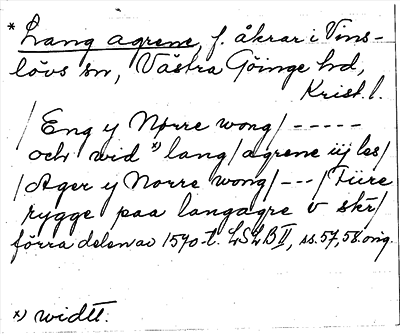 * Lang agrene, f. åkrar i Vins-
lövs sn, Västra Göinge hd,
Krist. l.
/Eng y Nørre wong/ -----
och wid *) lang/agrene iij les/
/Ager y Norre wong/ --- /Fiire
rygge paa langagre v skr/
förra delen av 1570-t. LSLB II, ss. 57, 58. orig.
*) widtt.